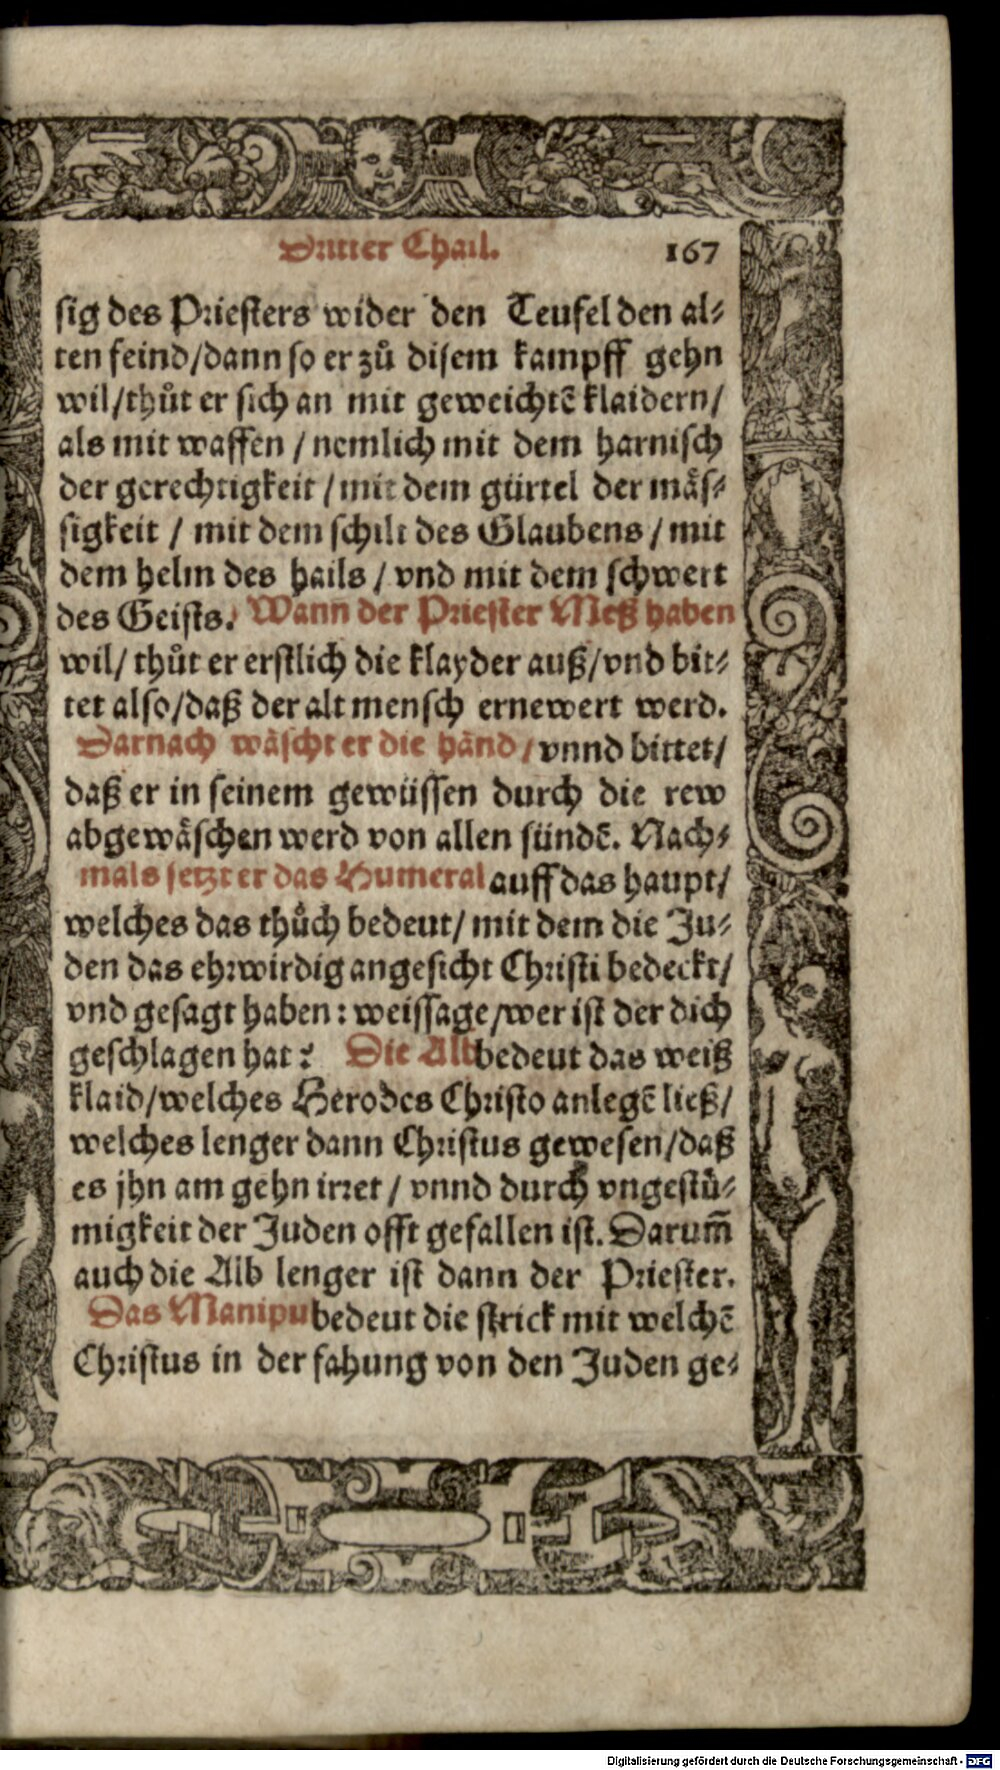 Dritter Thail. 167
sig des Priesters wider den Teufel den al⸗
ten feind/dann so er zů disem kampff gehn
wil/thůt er sich an mit geweichtẽ klaidern/
als mit waffen / nemlich mit dem harnisch
der gerechtigkeit / mit dem gürtel der mäs⸗
sigkeit / mit dem schilt des Glaubens / mit
dem helm des hails / vnd mit dem schwert
des Geists. Wann der Priester Meß haben
wil/ thůt er erstlich die klayder auß/vnd bit⸗
tet also/daß der alt mensch ernewert werd.
Darnach wäscht er die händ/ vnnd bittet/
daß er in seinem gewüssen durch die rew
abgewäschen werd von allen sündẽ. Nach⸗
mals setzt er das Humeral auff das haupt/
welches das thůch bedeut/ mit dem die Ju⸗
den das ehrwirdig angesicht Christi bedeckt/
vnd gesagt haben: weissage/wer ist der dich
geschlagen hat? Die Alb bedeut das weiß
klaid/welches Herodes Christo anlegẽ ließ/
welches lenger dann Christus gewesen/daß
es jhn am gehn irret / vnnd durch vngestü⸗
migkeit der Juden offt gefallen ist. Darum̃
auch die Alb lenger ist dann der Priester.
Das Manipu bedeut die strick mit welchẽ
Christus in der fahung von den Juden ge⸗
Digitalisierung gefördert durch die Deutsche Forschungsgemeinschaft - DFG